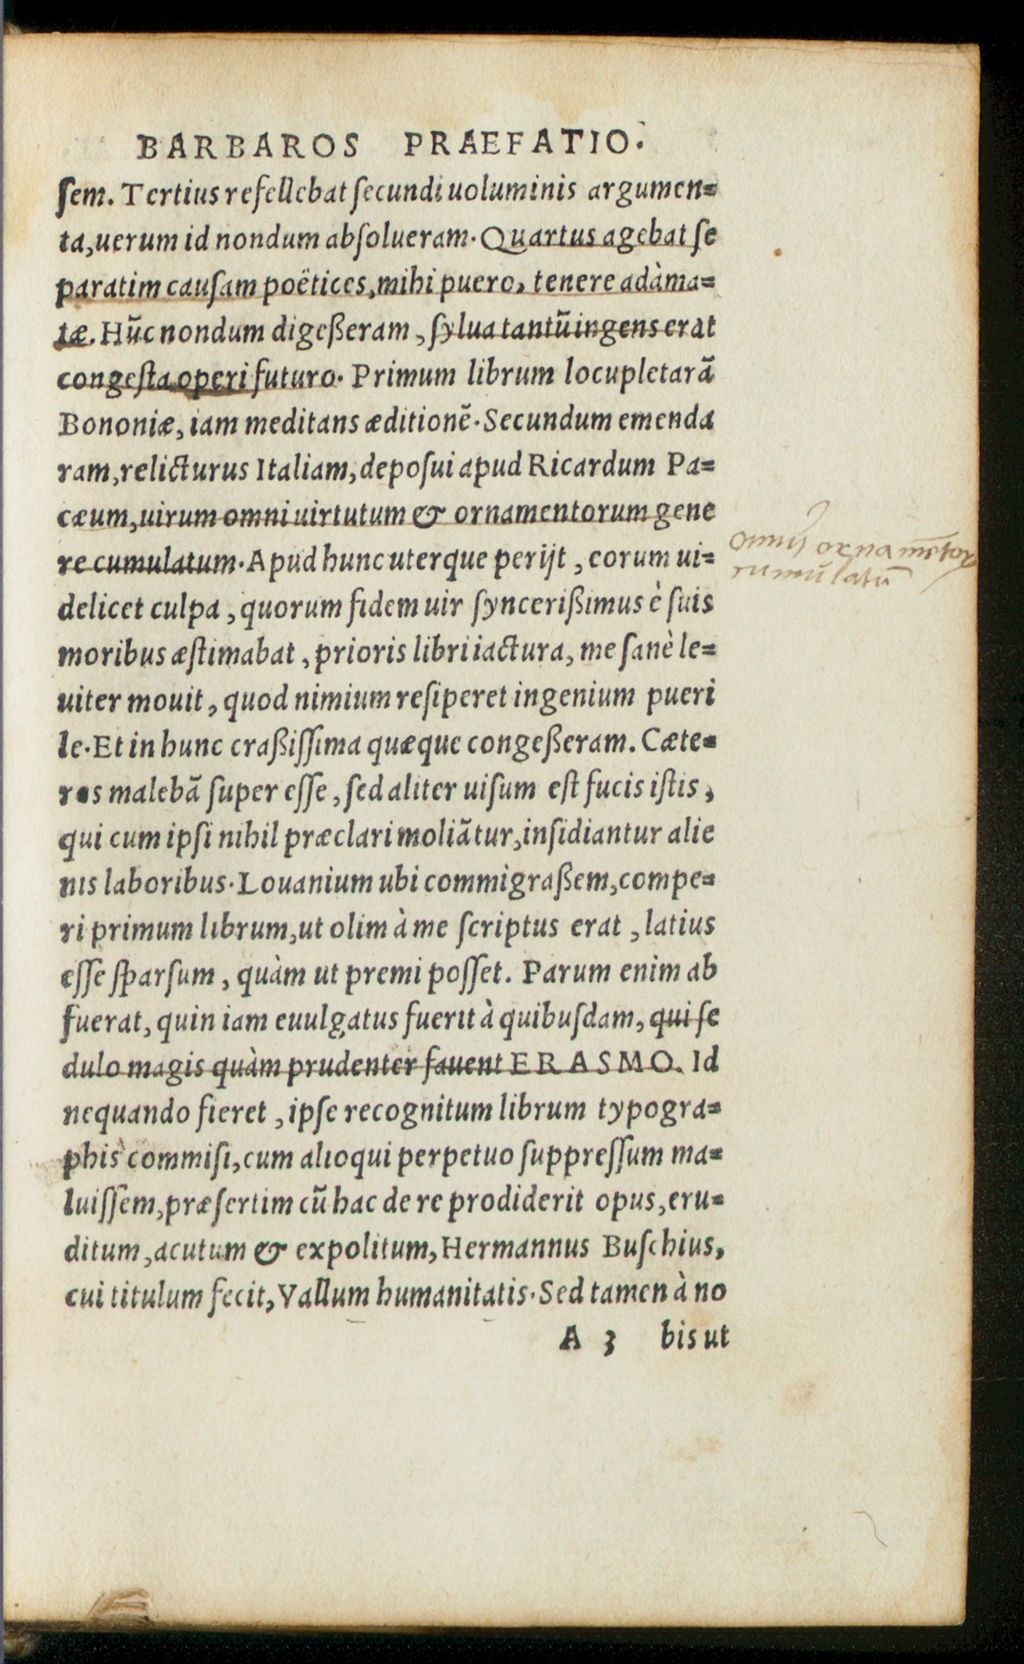 BARBAROS PRAEFATIO.
ſem. Tertius refellebat ſecundi uoluminis argumen=
ta, uerum id nondum abſolueram. Quartus agebat ſe
paratim cauſam poëtices, mihi puero, tenere adàma=
tæ. Hũc nondum digeßeram, ſylua tantũ ingens erat
congeſta operi futuro. Primum librum locupletarã
Bononiæ, iam meditans æditionẽ. Secundum emenda
ram, relicturus Italiam, depoſui apud Ricardum Pa=
cæum, uirum omni uirtutum & ornamentorum gene
re cumulatum. Apud hunc uterque perijt, eorum ui=
delicet culpa, quorum fidem uir ſyncerißimus è ſuis
moribus æſtimabat, prioris libri iactura, me ſanè le=
uiter mouit, quod nimium reſiperet ingenium pueri
le. Et in hunc craßiſſima quæque congeßeram. Cæte=
ros malebã super eſſe, ſed aliter uiſum eſt fucis iſtis,
qui cum ipſi nihil præclari moliãtur, inſidiantur alie
nis laboribus. Louanium ubi commigraßem, compe=
ri primum librum, ut olim à me ſcriptus erat, latius
eſſe ſparſum, quàm ut premi poſſet. Parum enim ab
fuerat, quin iam euulgatus fuerit à quibuſdam, qui ſe
dulo magis quàm prudenter fauent ERASMO. Id
nequando fieret, ipſe recognitum librum typogra=
phis commiſi, cum alioqui perpetuo ſuppreſſum ma=
luiſſem, præſertim cũ hac de re prodiderit opus, eru=
ditum, acutum & expolitum, Hermannus Buſchius,
cui titulum fecit, Vallum humanitatis. Sed tamen à no
A 3 bis ut